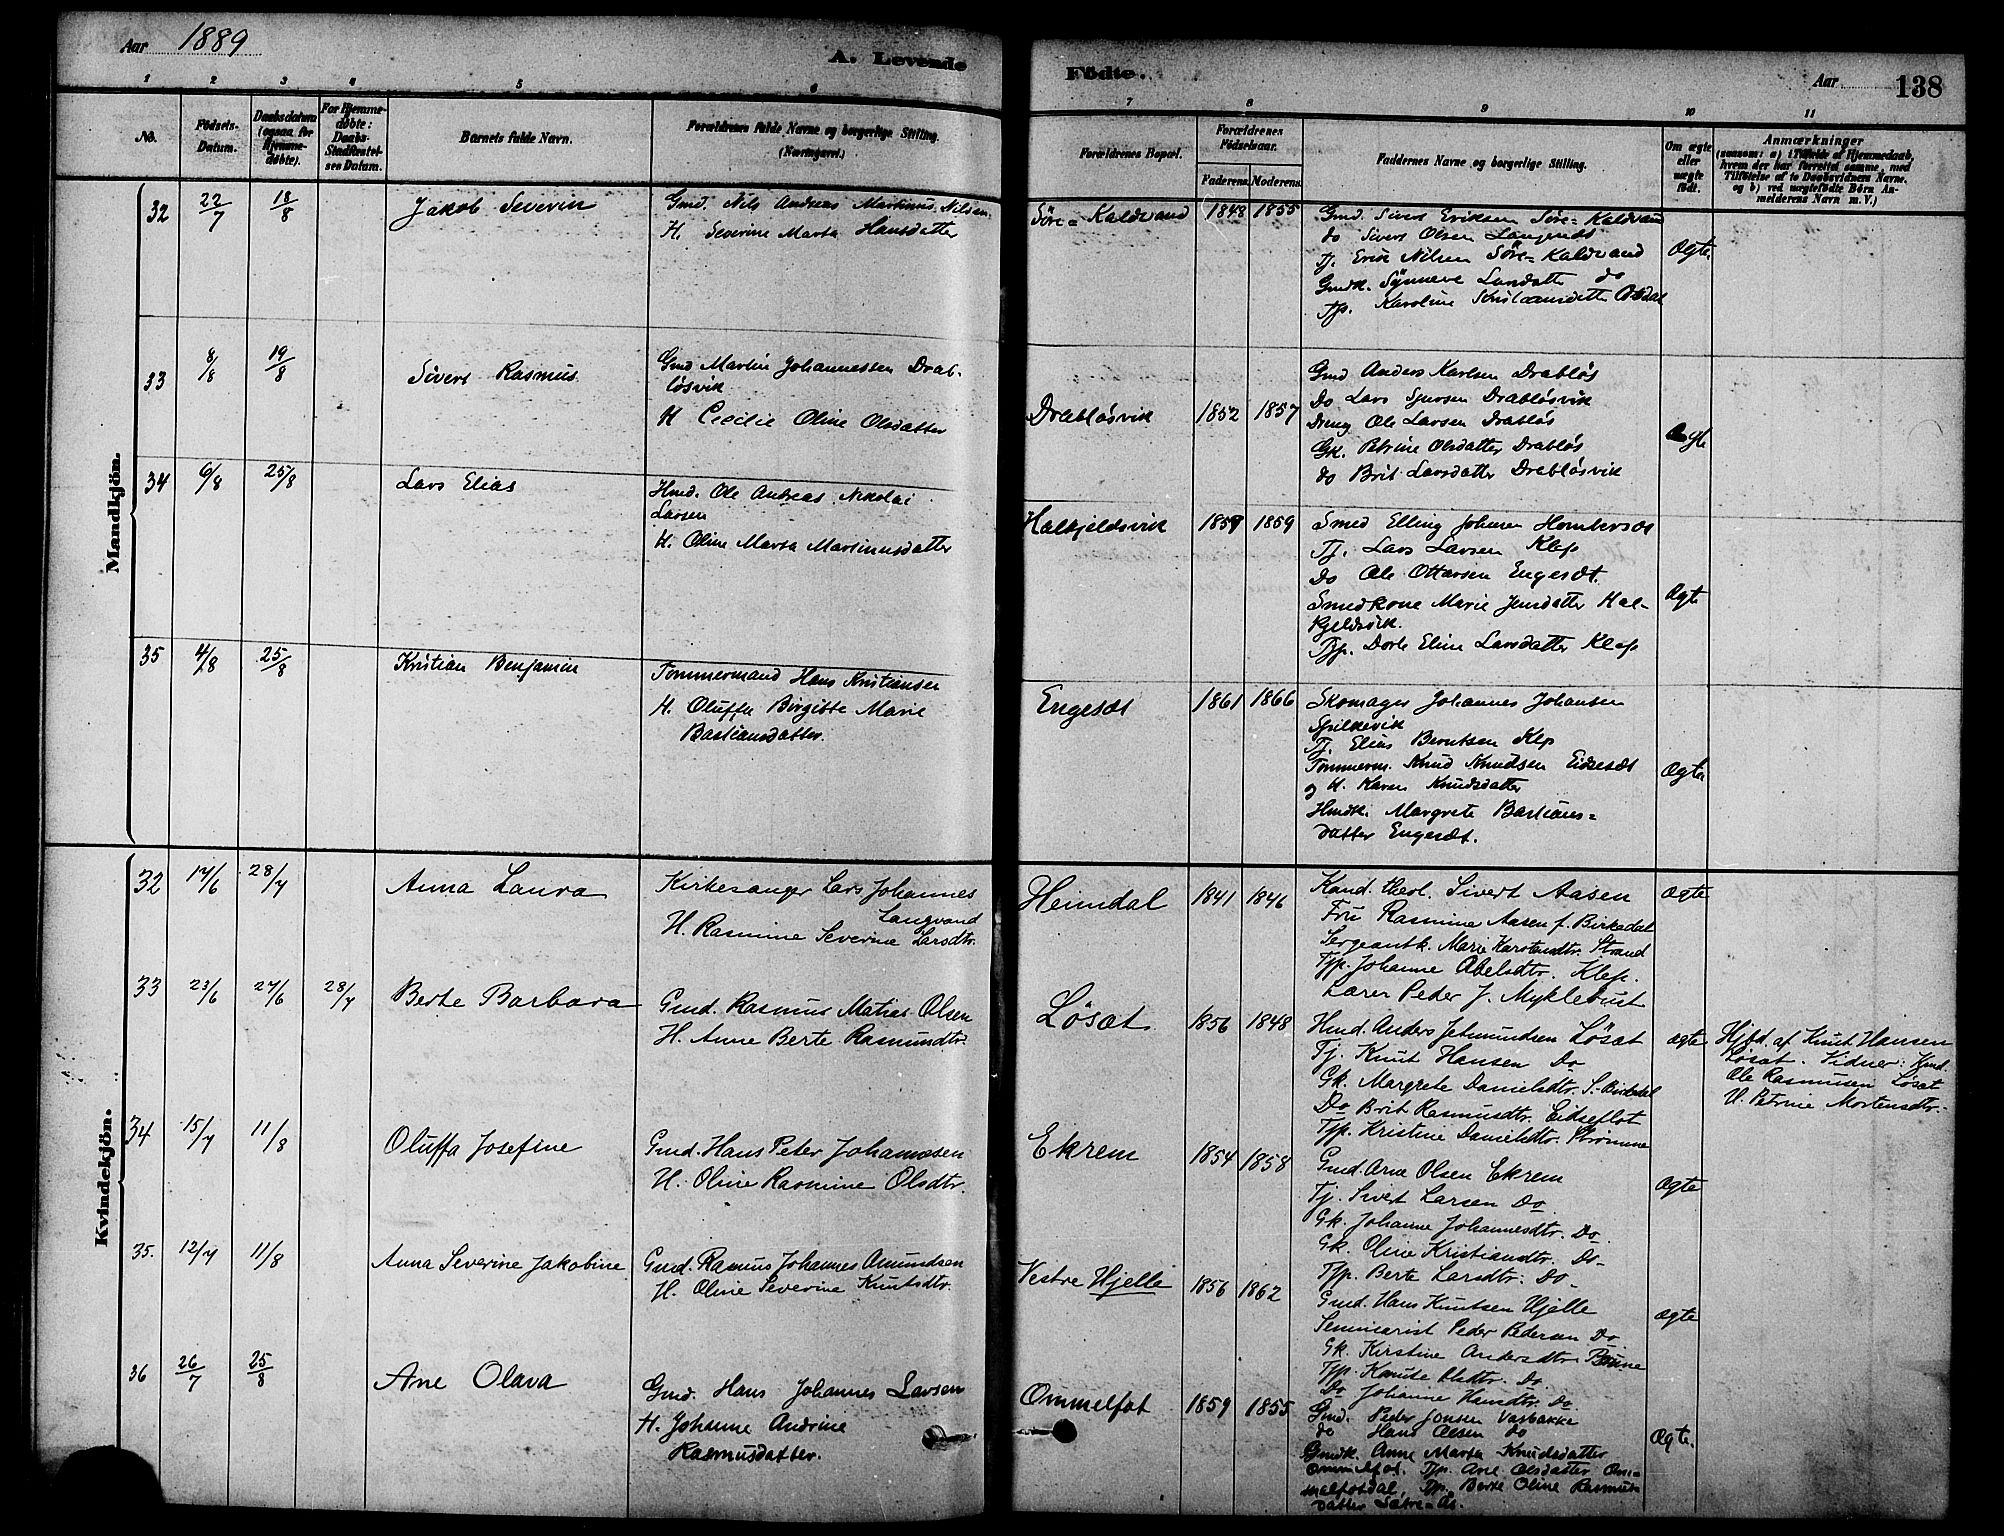 Aar 1889
A. Levende Födte.
Aar 138
1 2 3 4 5 6 7 8 9 10 11
No.
Födsels-Datum.
Daabsdatum (ogsaa for Hjemmedøbte).
For Hjemmedøbte: Daabs-Stadfæstelses Datum.
Barnets fulde Navn.
Forældrenes fulde Navne og borgerlige Stilling. (Næringsvei.)
Forældrenes Bopæl.
Forældrenes Födselsaar.
Faderens. Moderens.
Faddernes Navne og borgerlige Stilling.
Om ægte eller uægte født.
Anmærkninger
(saasom: a) i Tilfælde af Hjemmedaab, hvem der har forrettet samme, med Tilföielse af to Daabsvidners Navne, og b) ved uægtefödte Börn Anmelderens Navn m. V.)
Mandkjön.
32 22/7 18/8 Jakob Severin
Gmd. Nils Andreas Martinus Nilsen
H. Severine Marta Hansdatter
Søre-Kaldvand 1848 1855
Gmd. Sivert Eriksen Søre-Kaldvand
do Sivert Olsen Langesdt
Tj. Erik Nilsen Søre-Kaldvand
Gmdk. Synneve Larsdatter do
Tjp. Karoline Kristiansdatter
Ægte.
33 8/8 19/8 Sivert Rasmus
Gmd Martin Johannessen Drabløsvik
H Cecilie Oline Olsdatter
Drabløsvik 1852 1857
Gmd Anders Karlsen Drabløs
Do Lars Sjursen Drabløsvik
Dreng Ole Larsen Drabløs
Gk. Petrine Olsdatter Drabløs
do Brit Larsdatter Drabløsvik
Ægte
34 6/8 25/8 Lars Elias
Hmd. Ole Andreas Nikolai
Larsen
H. Oline Marta Martinusdatter
Halkjeldsvik 1859 1859
Smed Elling Johnsen
Tj. Lars Larsen Klep
Do Ole Ottarsen Engesæt.
Smedkone Marie Jensdatter Halkjeldsvik.
Tjp. Dorte Eline Larsdatter Klep
Ægte
35 4/8 25/8 Kristian Benjamin
Tømmermand Hans Kristiansen
H. Oluffa Birgitte Marie
Bastiansdatter.
Engesæt 1861 1866
Skomager Johannes Johansen
Spilkevik
Tj. Elias Berntsen Klep
Tømmerm. Knud Knudsen Eidsesæt
og H. Karen Knudsdatter
Hmdk. Margrete Bastians-
datter Engesæt.
Ægte.
Kvindekjön.
32 17/6 28/7 Anna Laura
Kirkesanger Lars Johannes
Langvand
H. Rasmine Severine Larsdtr.
Heimdal 1841 1846
Kand. theol. Sivert Aasen
Fru Rasmine Aasen f. Birkedal
Sergeantk. Marie Karstendtr. Strand
Tjp. Johanne Abelsdtr. Klep.
Lærer Peder J. Myklebust
ægte
33 23/6 27/6 28/7 Berte Barbara
Gmd. Rasmus Matias Olsen
H. Anne Berte Rasmundtr.
Løsæt 1856 1848
Hmd. Anders Jetmundsen Løsæt
Tj. Knut Hansen Do
Gk. Margrete Danielsdtr. S. Birkedal
Do Brit Rasmusdtr. Eidseflot
Tjp. Kristine Danielsdtr. Strømme
ægte
Hjbd. af Knut Hansen
Løsæt. Vidner: Hmd.
Ole Rasmusen Løsæt
H. Petrine Mortensdtr.
34 15/7 11/8 Oluffa Josefine
Gmd. Hans Peter Johannesen
H. Oline Rasmine Olsdtr.
Ekrem 1854 1858
Gmd. Arne Olsen Ekrem
Tj. Sivert Larsen Do
Gk. Johanne Johannesdtr. Do
Gk. Oline Kristiandtr. Do
Tjp. Berte Larsdtr. Do
ægte
35. 12/7 11/8 Anna Severine Jakobine
Gmd. Rasmus Johannes Amundsen
H. Oline Severine Knutsdtr.
Vestre Hjelle 1856 1862
Gmd. Hans Knutsen Hjelle
Seminarist Peder Pedersen Do
Gk. Kirstine Andersdtr.
Tjp. Knute Olsdtr. Do
Do Johanne Hansdtr. Do
ægte
36 26/7 25/8 Ane Olava
Gmd. Hans Johannes Larsen
H. Johanne Andrine
Rasmusdatter.
Ommelfot 1859 1855
Gmd. Peder Jonsen Vasbakke
do Hans Olsen do
Gmdk. Anne Marta Knudsdatter
Ommelfot. Tjp. Ane Olsdatter Om-
melfotdal, Tjp. Berte Oline Rasmus-
datter Sætre-Aa.
Ægte.